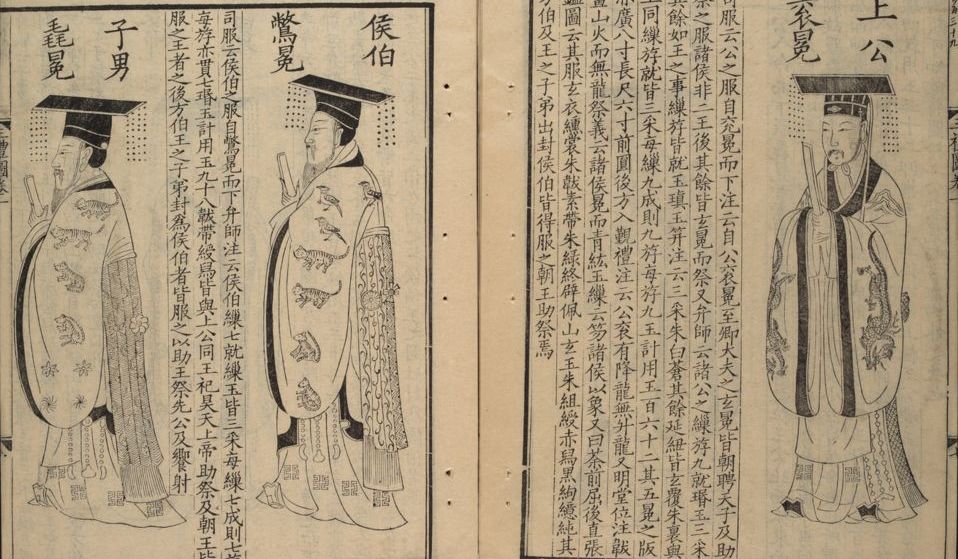 上公
袞冕
司服云公之服自衮冕而下注云自公衮冕至卿大夫之玄冕皆朝聘天子及助
祭之服諸侯非二王後其餘皆玄冕而祭又弁師云諸公之繅斿九就瑉玉三采
其餘如王之事繅斿皆就玉瑱玉笄注云三采朱白蒼其餘延紐皆玄覆朱裏與
王同繅斿就皆三采每繅九成則九斿每斿九玉計用玉一百六十二其五冕之版
亦廣八寸長尺六寸前圓後方入覲禮注云公衮有降龍無升龍又明堂位注韍
畫山火而無龍祭義云諸侯冕而青紘玉繅云笏諸侯以象又曰荼前屈後直張
圖云其服玄衣纁裳朱韍素帶朱綠終辟佩山玄玉朱組綬赤舄黒絇繶純其
方伯及王之子弟出封侯伯皆得服之朝王助祭焉
侯伯
鷩冕
司服云侯伯之服自鷩冕而下弁師注云侯伯繅七就繅玉皆三采每繅七成則七
每斿亦貫七瑉玉計用玉九十八韍帶綬舄皆與上公同王祀昊天上帝助祭及朝王皆
服之王者之後方伯王之子弟封爲侯伯者皆服之以助王祭先公及饗射
子男
毳冕
禮圖卷一